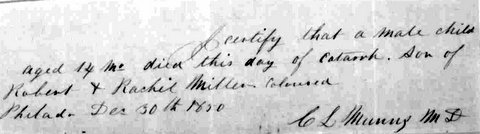 I certify that a male child
aged 14 mo died this day of Catarrh. Son of
Robert & Rachel Miller Coloured
Philad. Dec 30th 1850
C L Munns M D